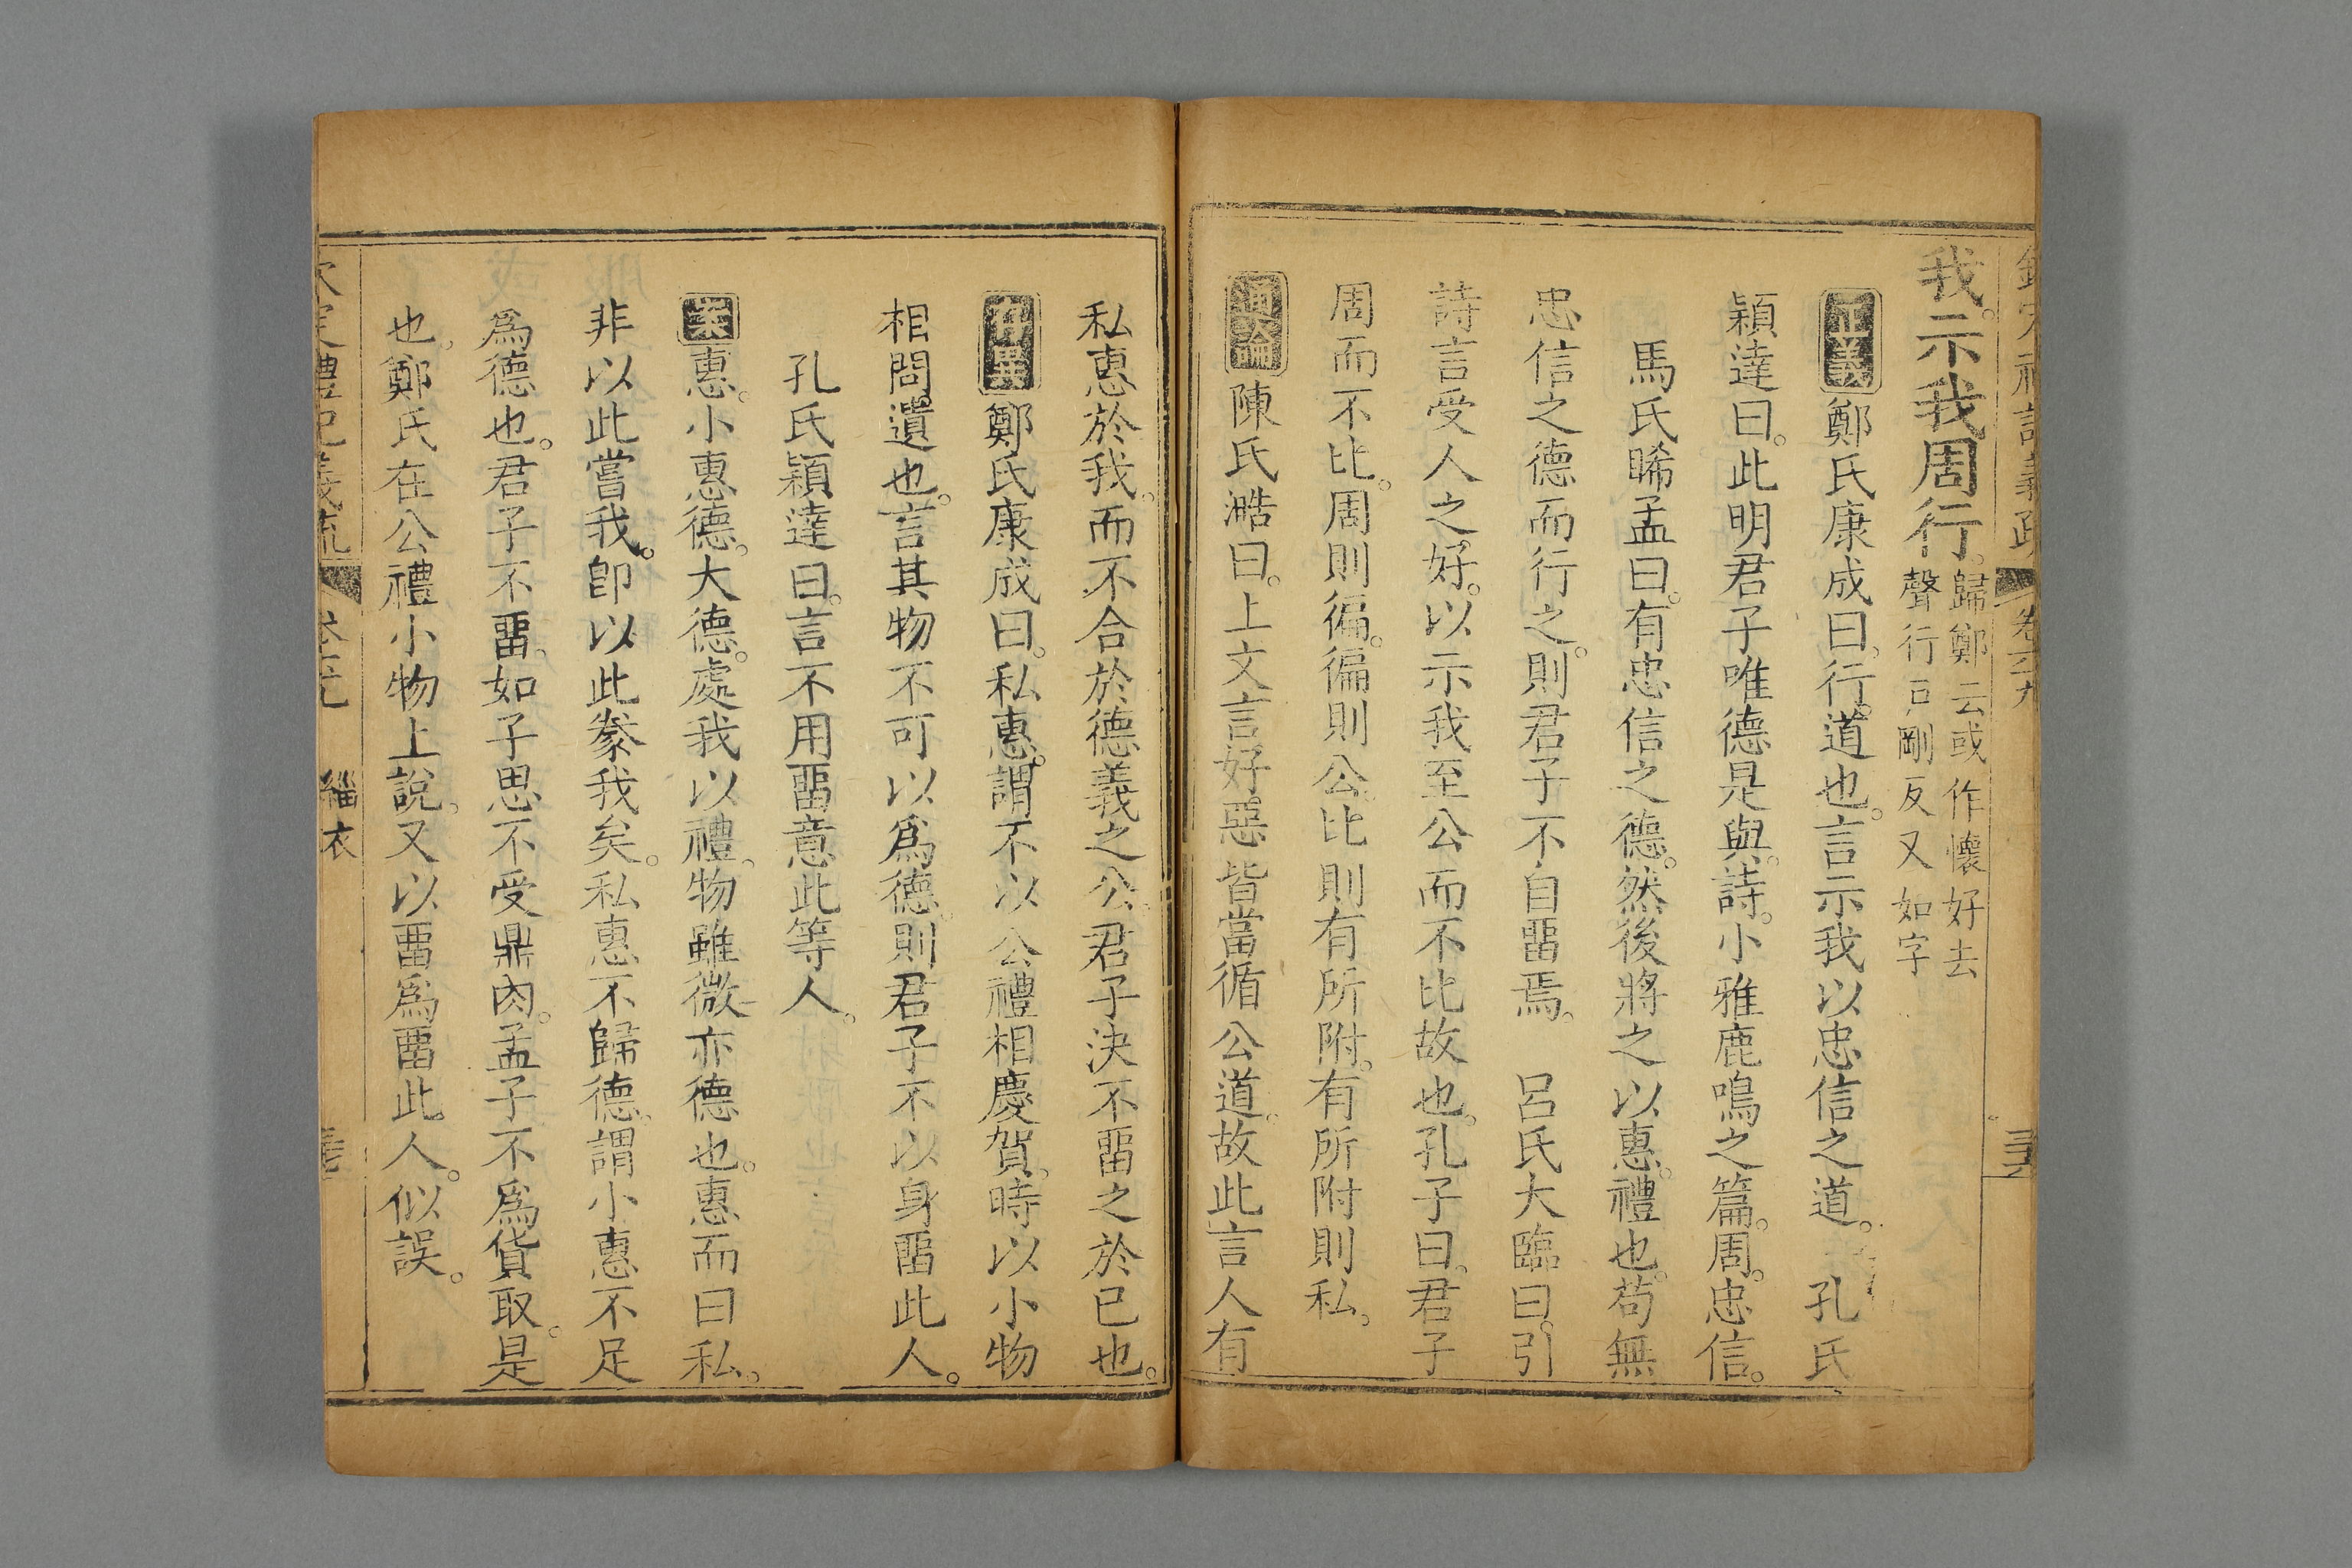 我。示我周行。歸鄭云或作懷好去
聲行戶剛反又如字
正義 鄭氏康成曰。行。道也。言示我以忠信之道。 孔氏
穎達曰。此明君子唯德是與。詩。小雅鹿鳴之篇。周。忠信。
馬氏晞孟曰。有忠信之德。然後將之以惠。禮也。苟無
忠信之德而行之。則君子不自畱焉。 呂氏大臨曰。引
詩言受人之好。以示我至公而不比故也。孔子曰。君子
周而不比。周則徧。徧則公。比則有所附。有所附則私。
通論 陳氏澔曰。上文言好惡皆當循公道。故此言人有
私惠於我。而不合於德義之公。君子決不畱之於已也。
存異 鄭氏康成曰。私惠。謂不以公禮相慶賀。時以小物
相問遺也。言其物不可以爲德。則君子不以身畱此人。
孔氏穎達曰。言不用畱意此等人。
案 惠。小惠德。大德。處我以禮。物雖微亦德也。惠而曰私。
非以此嘗我。卽以此豢我矣。私惠不歸德。謂小惠不足
爲德也。君子不畱。如子思不受鼎肉。孟子不爲貨取。是
也。鄭氏在公禮小物上說。又以畱爲畱此人。似誤。
欽定禮記義疏 卷六九 緇衣